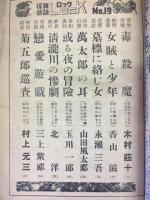 探偵雑誌 ロック LOCK No.19
毒殺魔 木村荘十
女賊と少年 香山滋
墓標に絡む女 永瀬三吾
萬太郎の耳 山田風太郎
或る夜の冒険 玉川一郎
清瀧川の惨劇 北洋
戀愛遊戯 三上紫郎
菊五郎巡査 村上元三